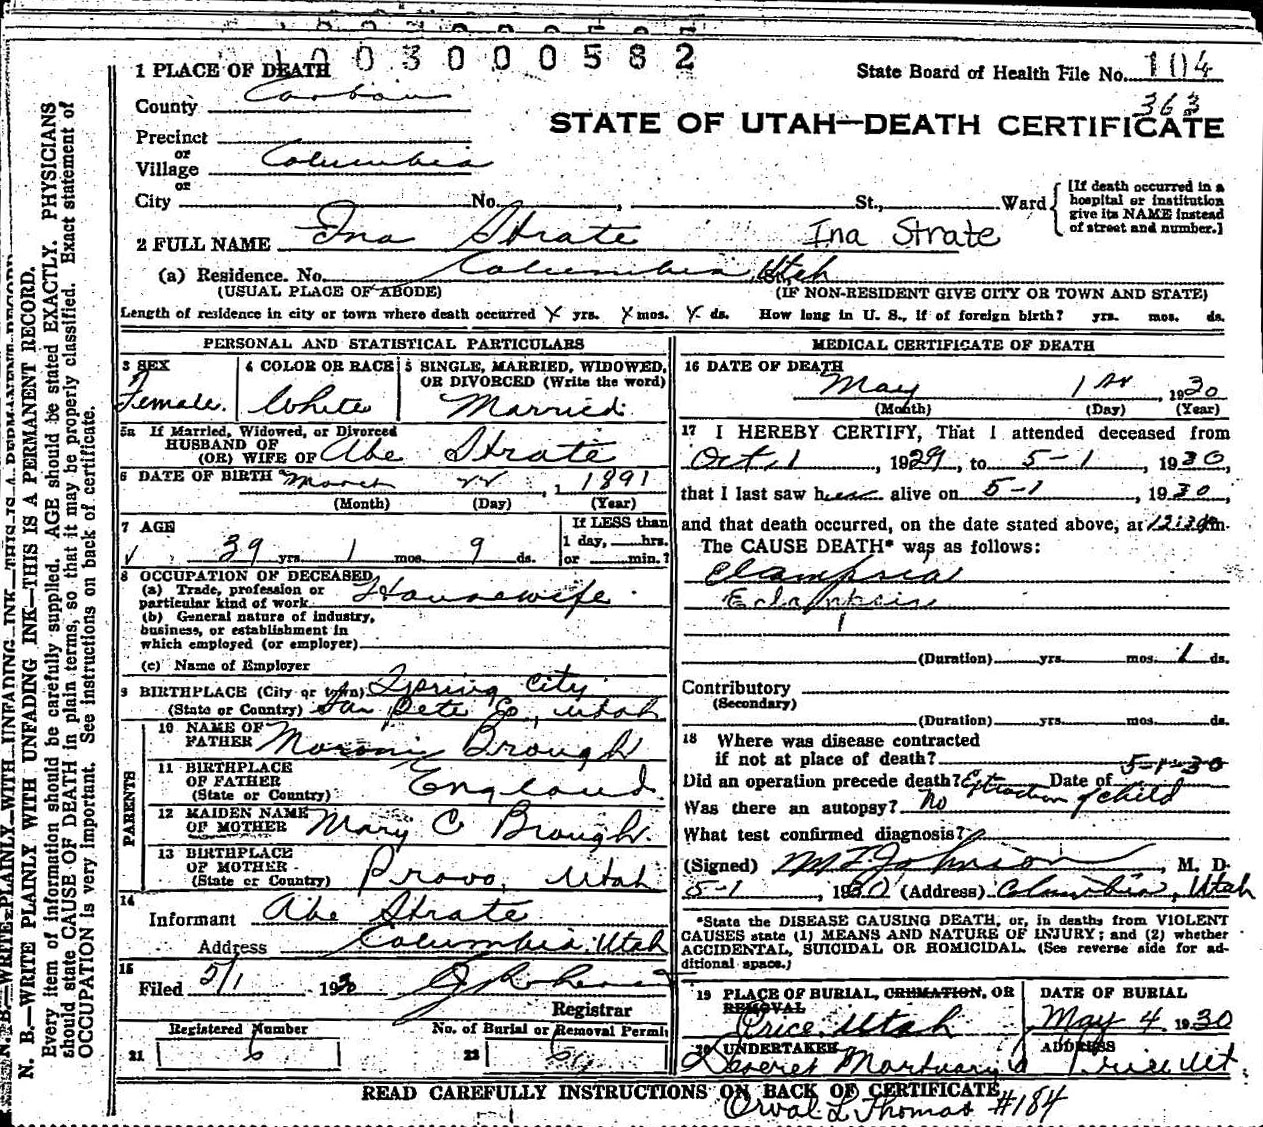 1003000582
1 PLACE OF DEATH
State Board of Health File No. 104
County Carbon
363
STATE OF UTAH—DEATH CERTIFICATE
Precinct
or
Village Columbia
or
City No. , St., Ward
[If death occurred in a
hospital or institution
give its NAME instead
of street and number.]
2 FULL NAME Ina Strate Ina Strate
(a) Residence. No. Columbia, Utah
(USUAL PLACE OF ABODE) (IF NON-RESIDENT GIVE CITY OR TOWN AND STATE)
Length of residence in city or town where death occurred yrs. mos. ds. How long in U. S., if of foreign birth? yrs. mos. ds.
PERSONAL AND STATISTICAL PARTICULARS
3 SEX
Female
4 COLOR OR RACE
White
5 SINGLE, MARRIED, WIDOWED,
OR DIVORCED (Write the word)
Married
5a If Married, Widowed, or Divorced
HUSBAND OF
(OR) WIFE OF Abe Strate
6 DATE OF BIRTH March 22, 1891
(Month) (Day) (Year)
7 AGE
39 yrs. 1 mos. 9 ds.
If LESS than
1 day, hrs.
or min.?
8 OCCUPATION OF DECEASED
(a) Trade, profession or
particular kind of work Housewife
(b) General nature of industry,
business, or establishment in
which employed (or employer)
(c) Name of Employer
9 BIRTHPLACE (City or town) Spring City
(State or Country) San Pete Co., Utah
PARENTS
10 NAME OF
FATHER Moroni Brough
11 BIRTHPLACE
OF FATHER
(State or Country) England
12 MAIDEN NAME
OF MOTHER Mary C Brough
13 BIRTHPLACE
OF MOTHER
(State or Country) Provo, Utah
14
Informant Abe Strate
Address Columbia, Utah
15
Filed 5/1 1930
Registrar
Registered Number
21 6
No. of Burial or Removal Permit
22
MEDICAL CERTIFICATE OF DEATH
16 DATE OF DEATH
May 1st 1930
(Month) (Day) (Year)
17 I HEREBY CERTIFY, That I attended deceased from
Oct. 1, 1929, to 5-1, 1930,
that I last saw her alive on 5-1, 1930,
and that death occurred, on the date stated above, at m.
The CAUSE DEATH* was as follows:
Elampsia
Eclampsia
(Duration) yrs. mos. 1 ds.
Contributory
(Secondary)
(Duration) yrs. mos. ds.
18 Where was disease contracted
if not at place of death?
5-1-30
Did an operation precede death? Extraction of child Date of
Was there an autopsy? No
What test confirmed diagnosis?
(Signed) M F Johnson, M. D.
5-1, 1930 (Address) Columbia, Utah
*State the DISEASE CAUSING DEATH, or, in deaths from VIOLENT
CAUSES state (1) MEANS AND NATURE OF INJURY; and (2) whether
ACCIDENTAL, SUICIDAL OR HOMICIDAL. (See reverse side for ad-
ditional space.)
19 PLACE OF BURIAL, CREMATION, OR
REMOVAL
Price, Utah
DATE OF BURIAL
May 4 1930
20 UNDERTAKER
Deseret Mortuary
ADDRESS
Price Ut.
READ CAREFULLY INSTRUCTIONS ON BACK OF CERTIFICATE
Orval L Thomas #184
N. B.—WRITE PLAINLY WITH UNFADING INK—THIS IS A PERMANENT RECORD.
N. B.—WRITE PLAINLY WITH UNFADING INK—THIS IS A PERMANENT RECORD.
Every item of information should be carefully supplied. AGE should be stated EXACTLY. PHYSICIANS
should state CAUSE OF DEATH in plain terms, so that it may be properly classified. Exact statement of
OCCUPATION is very important. See instructions on back of certificate.